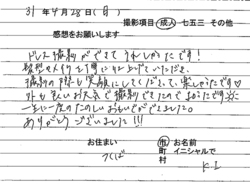 31年4月28日(日)
撮影項目 成人 七五三 その他
感想をお願いします
ドレス撮影ができてうれしかったです!
髪型やメイクも丁寧に仕上げていただき、
撮影の際も笑顔にしてくださって、楽しかったです♡
外も良いお天気で撮影できたのでよかったです☼
一生に一度のたのしいおもいでができました。
ありがとうございました!!!
お住まい お名前
つくば 市 町 村 イニシャルで
K.I